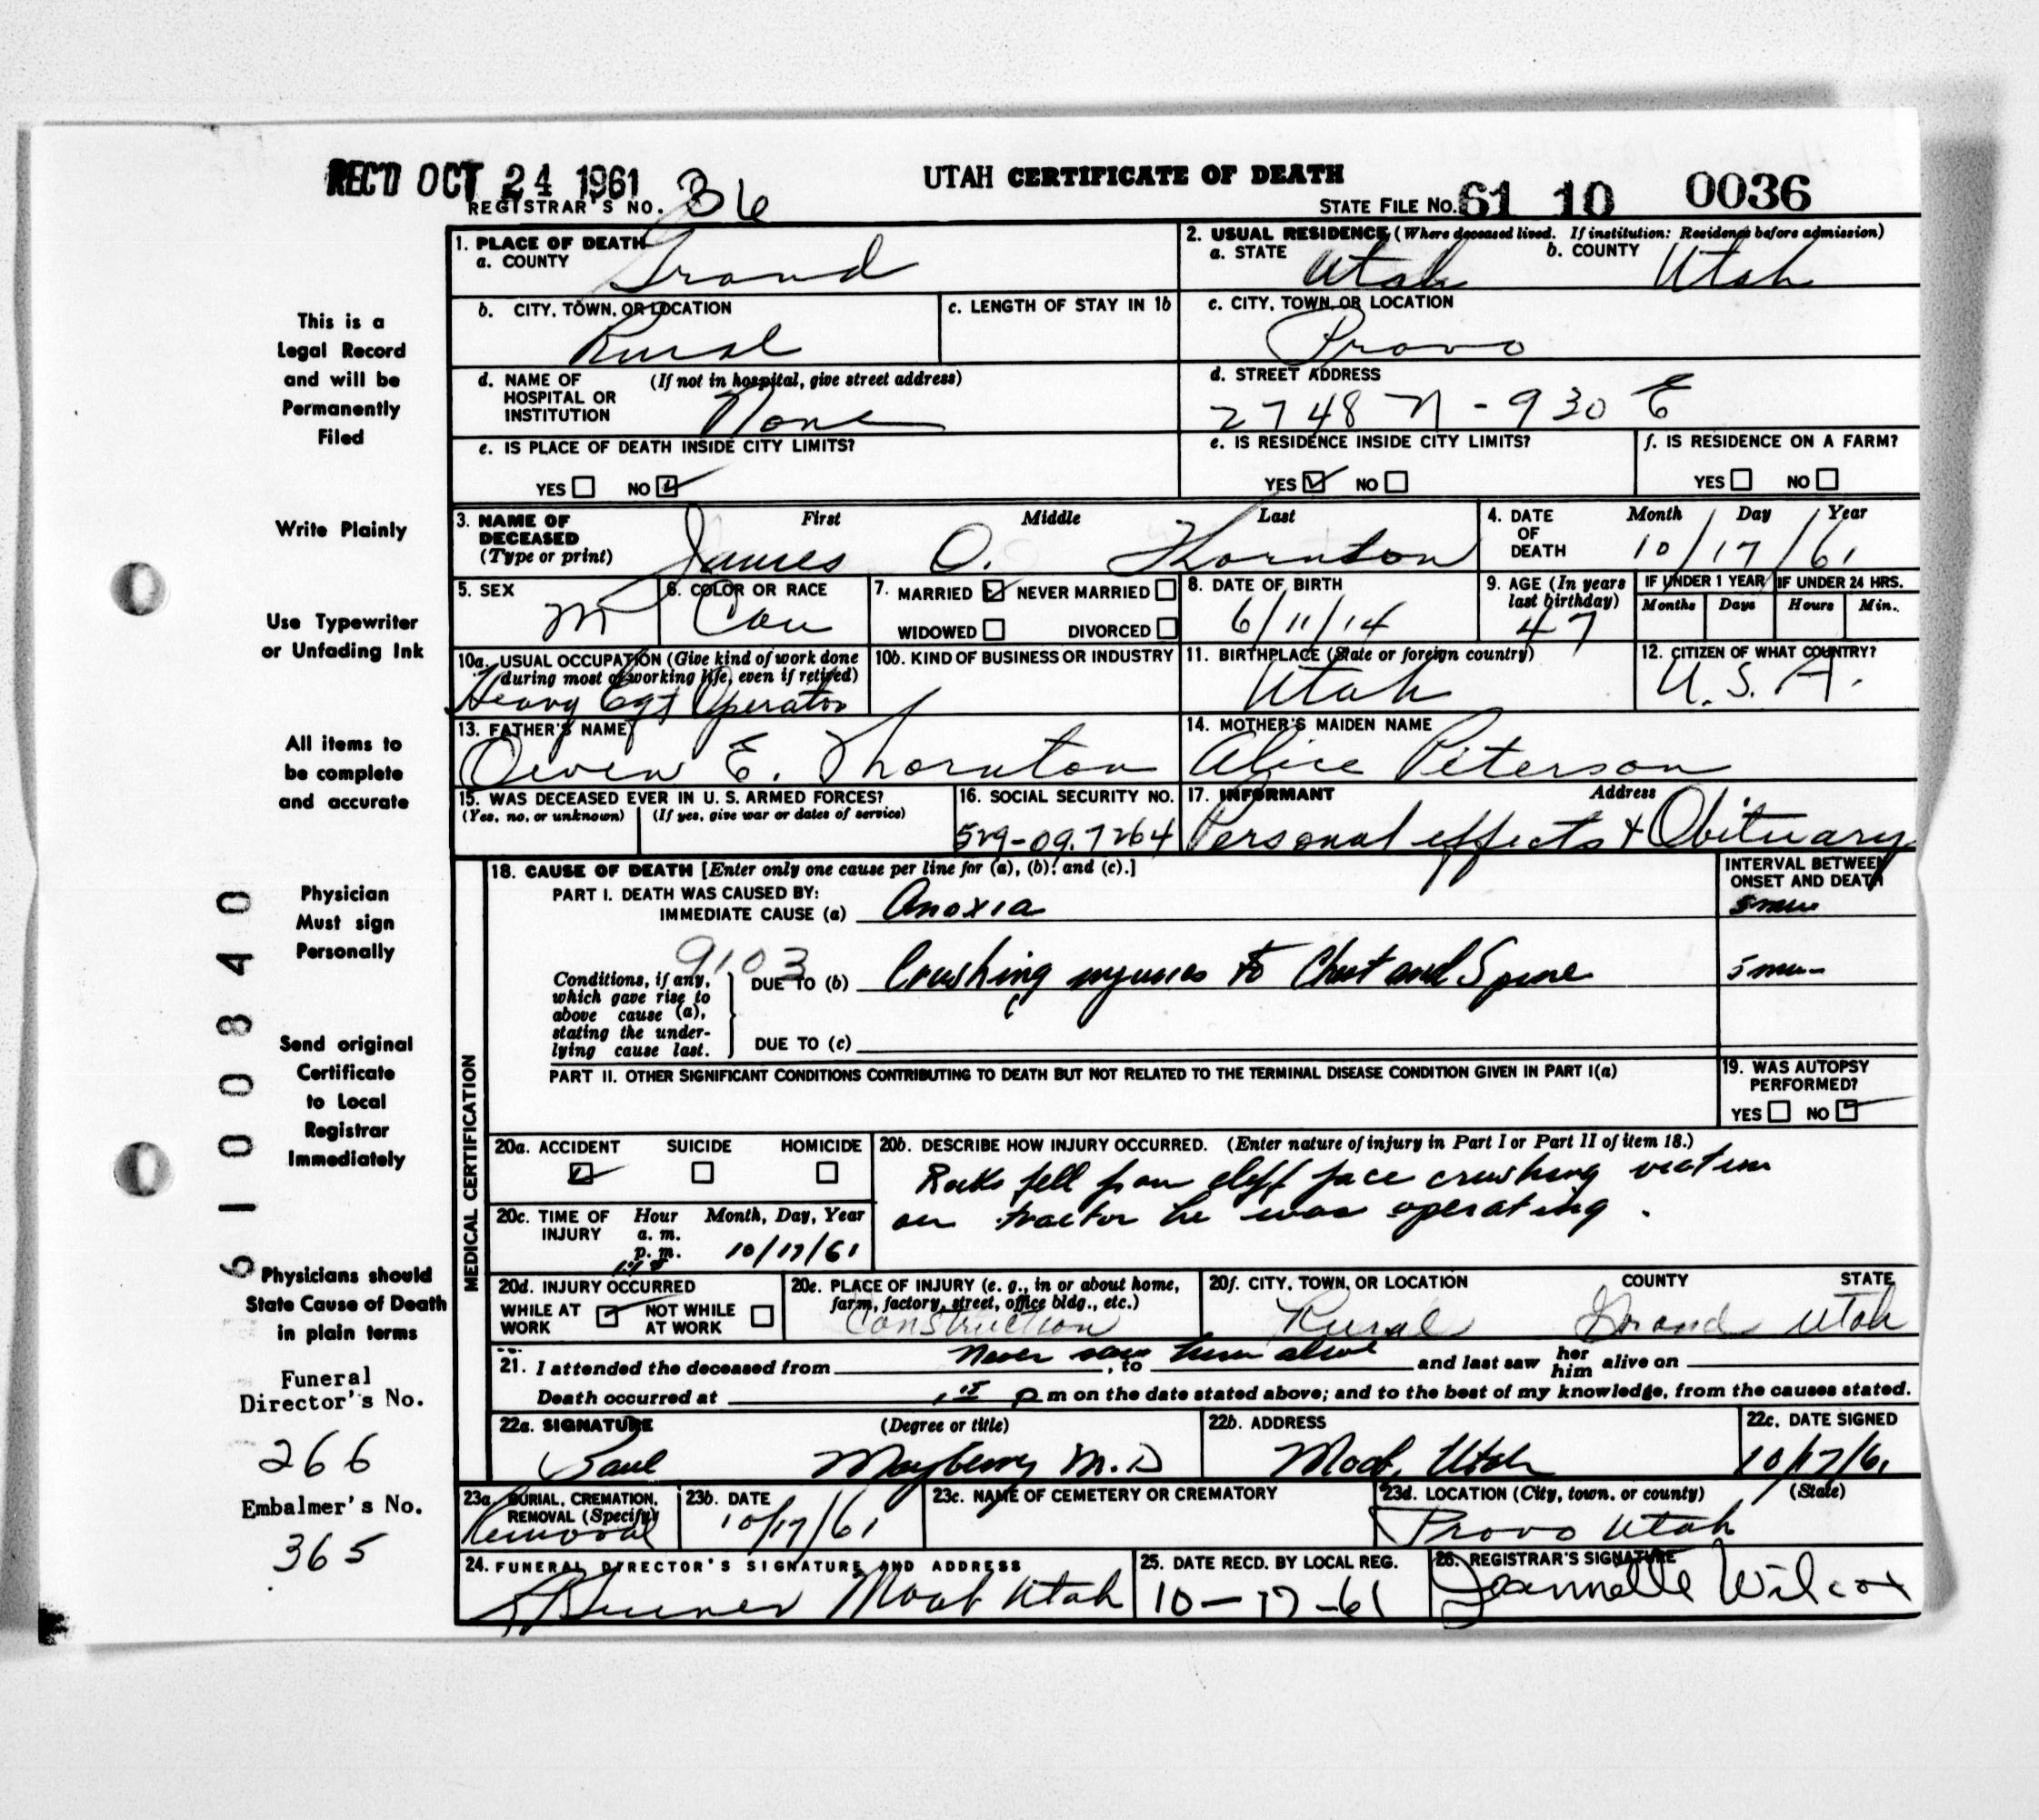 REC'D OCT 24 1961
REGISTRAR'S NO. 36
UTAH CERTIFICATE OF DEATH
STATE FILE NO. 61 10 0036
This is a
Legal Record
and will be
Permanently
Filed
Write Plainly
Use Typewriter
or Unfading Ink
All items to
be complete
and accurate
Physician
Must sign
Personally
Send original
Certificate
to Local
Registrar
Immediately
Physicians should
State Cause of Death
in plain terms
Funeral
Director's No.
266
Embalmer's No.
365
61000840
1. PLACE OF DEATH
a. COUNTY Grand
2. USUAL RESIDENCE (Where deceased lived. If institution: Residence before admission)
a. STATE Utah b. COUNTY Utah
b. CITY, TOWN, OR LOCATION
Rural
c. LENGTH OF STAY IN 1b
c. CITY, TOWN, OR LOCATION
Provo
d. NAME OF (If not in hospital, give street address)
HOSPITAL OR
INSTITUTION None
d. STREET ADDRESS
2748 N - 930 E
e. IS PLACE OF DEATH INSIDE CITY LIMITS?
YES NO
e. IS RESIDENCE INSIDE CITY LIMITS?
YES NO
f. IS RESIDENCE ON A FARM?
YES NO
3. NAME OF DECEASED (Type or print)
First Middle Last
James O. Thornton
4. DATE OF DEATH
Month Day Year
10/17/61
5. SEX
M
6. COLOR OR RACE
Cau
7. MARRIED NEVER MARRIED
WIDOWED DIVORCED
8. DATE OF BIRTH
6/11/14
9. AGE (In years last birthday)
47
IF UNDER 1 YEAR
Months Days
IF UNDER 24 HRS.
Hours Min.
10a. USUAL OCCUPATION (Give kind of work done
during most of working life, even if retired)
Heavy Eqt Operator
10b. KIND OF BUSINESS OR INDUSTRY
11. BIRTHPLACE (State or foreign country)
Utah
12. CITIZEN OF WHAT COUNTRY?
U.S.A.
13. FATHER'S NAME
Owen E. Thornton
14. MOTHER'S MAIDEN NAME
Alice Peterson
15. WAS DECEASED EVER IN U. S. ARMED FORCES?
(Yes, no, or unknown) (If yes, give war or dates of service)
16. SOCIAL SECURITY NO.
529-09.7264
17. INFORMANT Address
Personal effects + Obituary
MEDICAL CERTIFICATION
18. CAUSE OF DEATH [Enter only one cause per line for (a), (b), and (c).]
INTERVAL BETWEEN
ONSET AND DEATH
PART I. DEATH WAS CAUSED BY:
IMMEDIATE CAUSE (a) Anoxia 5 min
9103
Conditions, if any,
which gave rise to
above cause (a),
stating the under-
lying cause last.
DUE TO (b) Crushing injuries to Chest and Spine 5 min
DUE TO (c)
PART II. OTHER SIGNIFICANT CONDITIONS CONTRIBUTING TO DEATH BUT NOT RELATED TO THE TERMINAL DISEASE CONDITION GIVEN IN PART I(a)
19. WAS AUTOPSY
PERFORMED?
YES NO
20a. ACCIDENT SUICIDE HOMICIDE
20b. DESCRIBE HOW INJURY OCCURRED. (Enter nature of injury in Part I or Part II of item 18.)
Rocks fell from cliff face crushing victim
on tractor he was operating.
20c. TIME OF INJURY
Hour Month, Day, Year
a. m.
p. m. 10/17/61
20d. INJURY OCCURRED
WHILE AT WORK NOT WHILE AT WORK
20e. PLACE OF INJURY (e. g., in or about home,
farm, factory, street, office bldg., etc.)
Construction
20f. CITY, TOWN, OR LOCATION COUNTY STATE
Rural Grand Utah
21. I attended the deceased from Never saw him alive, to and last saw her him alive on
Death occurred at 1 15 p m on the date stated above; and to the best of my knowledge, from the causes stated.
22a. SIGNATURE (Degree or title)
Paul Mayberry M.D
22b. ADDRESS
Moab, Utah
22c. DATE SIGNED
10/17/61
23a. BURIAL, CREMATION,
REMOVAL (Specify)
Removal
23b. DATE
10/17/61
23c. NAME OF CEMETERY OR CREMATORY
23d. LOCATION (City, town, or county) (State)
Provo Utah
24. FUNERAL DIRECTOR'S SIGNATURE AND ADDRESS
Moab Utah
25. DATE RECD. BY LOCAL REG.
10-17-61
26. REGISTRAR'S SIGNATURE
Jeannette Wilcox